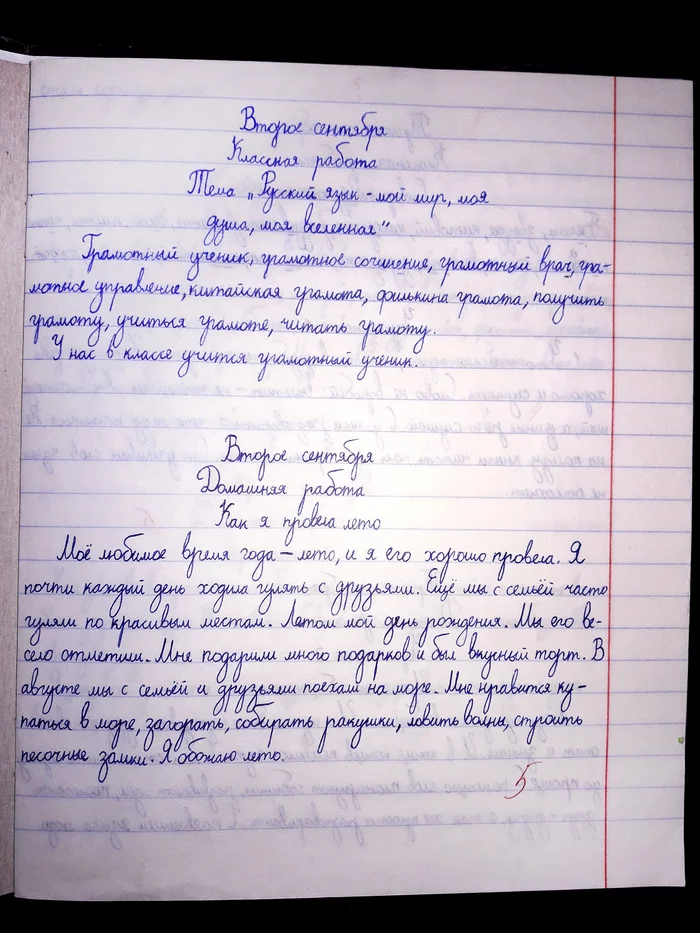 Второе сентября
Классная работа
Тема „Русский язык - мой мир, моя
душа, моя вселенная"
Грамотный ученик, грамотное сочинение, грамотный врач, гра-
мотное управление, китайская грамота, филькина грамота, получить
грамоту, учиться грамоте, читать грамоту.
У нас в классе учится грамотный ученик.
Второе сентября
Домашняя работа
Как я провела лето
Моё любимое время года – лето, и я его хорошо провела. Я
почти каждый день ходила гулять с друзьями. Ещё мы с семьёй часто
гуляли по красивым местам. Летом мой день рождения. Мы его ве-
село отметили. Мне подарили много подарков и был вкусный торт. В
августе мы с семьёй и друзьями поехали на море. Мне нравится ку-
паться в море, загорать, собирать ракушки, ловить волны, строить
песочные замки. Я обожаю лето.
5